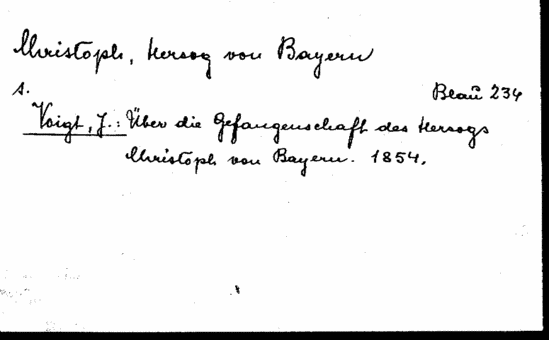 Christoph, Herzog von Bayern
s. Blau 234
Voigt, J.: Über die Gefangenschaft des Herzogs
Christoph von Bayern. 1854.